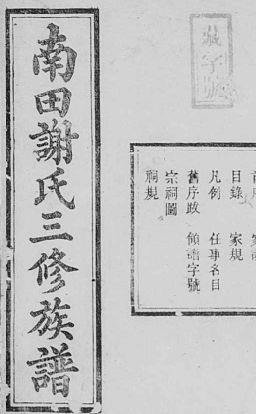 南田謝氏三修族譜
藏字號
目錄 家規
凡例 任事名目
舊序跋 領譜字號
宗祠圖
祠規